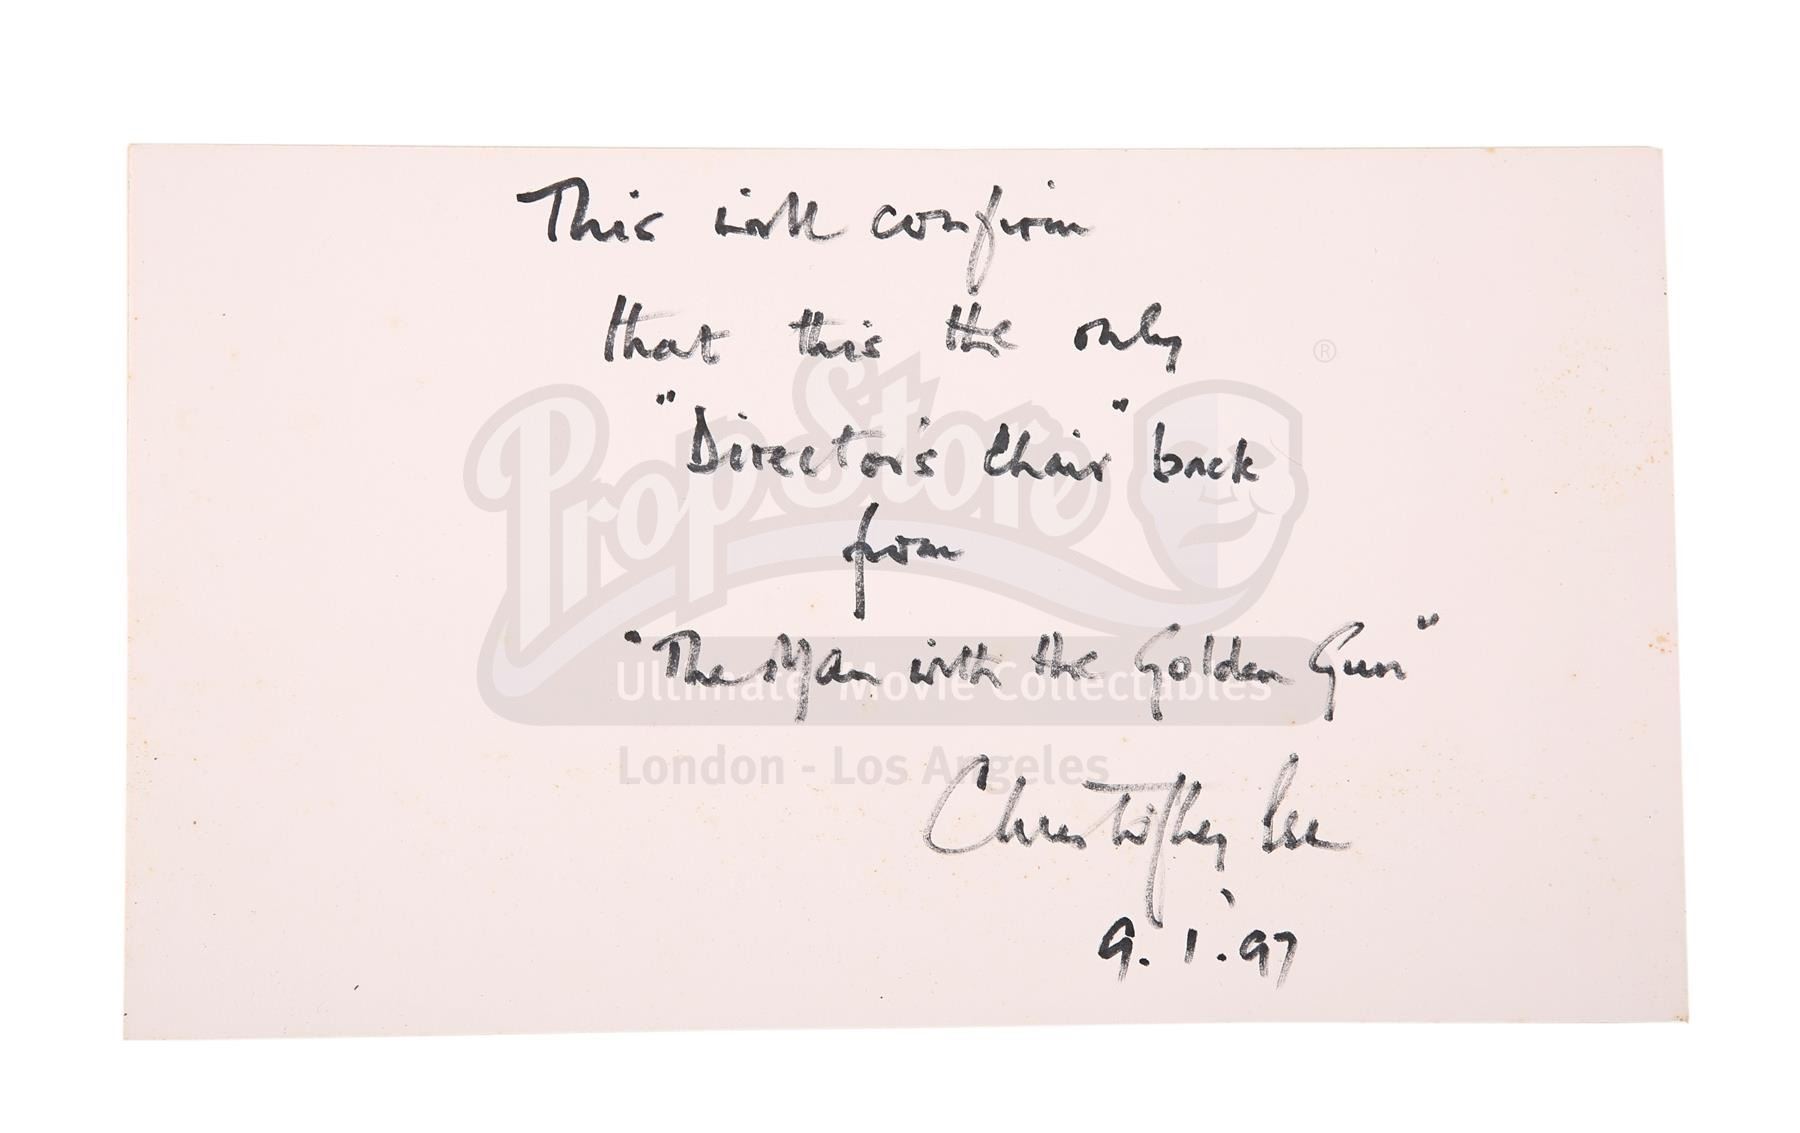 This will confirm
that this the only
"Director's Chair" back
from
"The Man with the Golden Gun"
Christopher Lee
9.1.97
PropStore
®
Ultimate Movie Collectables
London - Los Angeles